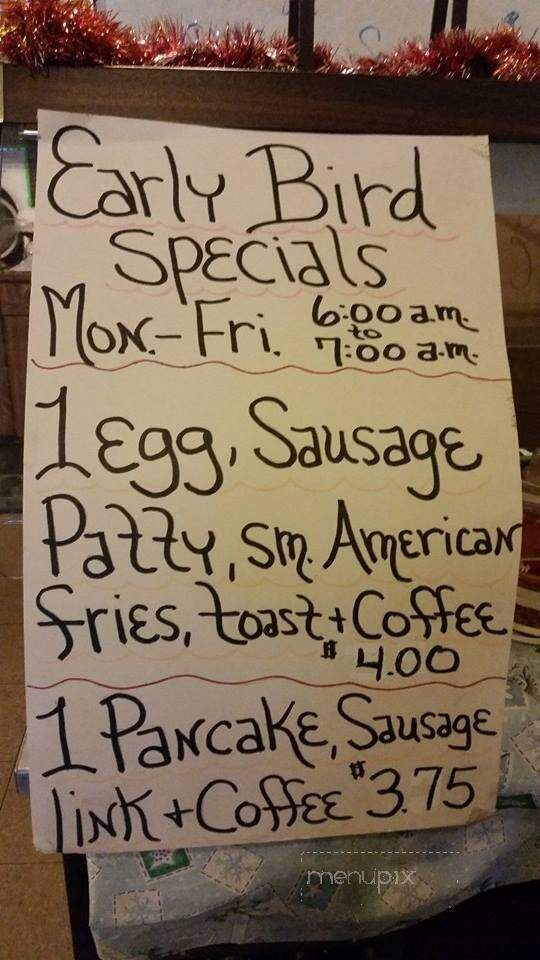 Early Bird
Specials
Mon.-Fri. 6:00 a.m.
to
7:00 a.m.
1 Egg, Sausage
Patty, sm. American
fries, toast + Coffee
$4.00
1 Pancake, Sausage
link + Coffee $3.75
menupix